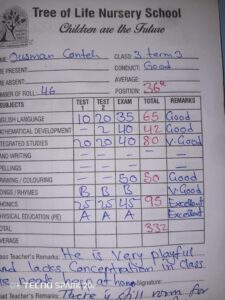 Tree of Life Nursery School
Children are the Future
Ousman Conteh CLASS: 3 term 3
ME PRESENT: CONDUCT: Good
ME ABSENT: AVERAGE:
NUMBER OF ROLL: 46 POSITION: 36th
SUBJECTS TEST 1 TEST 2 EXAM TOTAL REMARKS
ENGLISH LANGUAGE 10 20 35 65 Good
MATHEMATICAL DEVELOPMENT - 2 40 42 Good
INTEGRATED STUDIES 20 20 40 80 V-Good
HAND WRITING - - - - -
SPELLINGS - - - - -
DRAWING / COLOURING - - 50 50 Good
SONGS / RHYMES B B B V-Good
PHONICS 25 25 45 95 Excellent
PHYSICAL EDUCATION (PE) A A A Excellent
TOTAL 332
AVERAGE
Class Teacher's Remarks: He is Very Playful
and lacks Concentration in Class
at home Signature:
Head Teacher's Remarks: There is still room for
TECNO SPARK